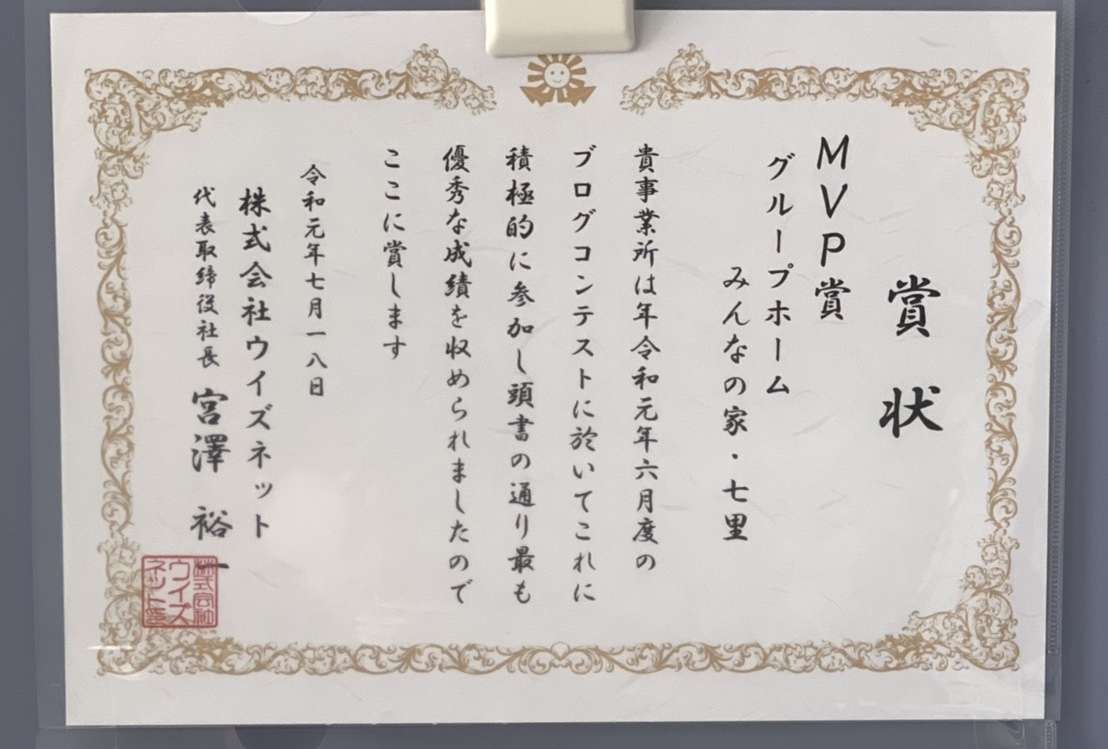 賞状
MVP賞
グループホーム
みんなの家・七里
貴事業所は年令和元年六月度の
ブログコンテストに於いてこれに
積極的に参加し頭書の通り最も
優秀な成績を収められましたので
ここに賞します
令和元年七月一八日
株式会社ウイズネット
代表取締役社長 宮澤 裕一
株式会社
ウイズ
ネット